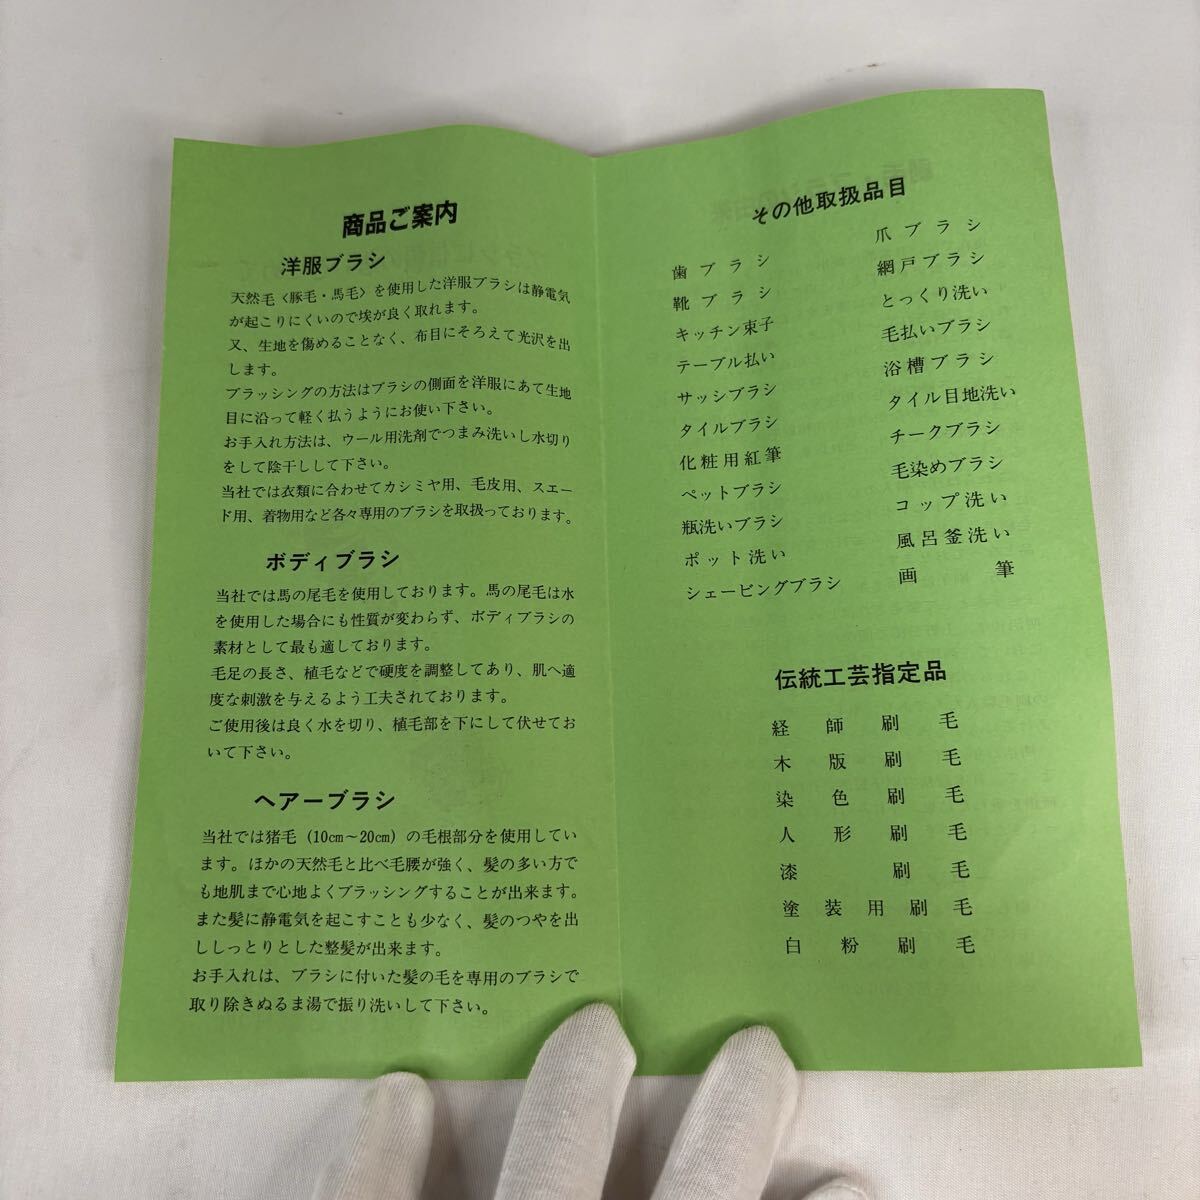 商品ご案内
洋服ブラシ
天然毛〈豚毛・馬毛〉を使用した洋服ブラシは静電気
が起こりにくいので埃が良く取れます。
又、生地を傷めることなく、布目にそろえて光沢を出
します。
ブラッシングの方法はブラシの側面を洋服にあて生地
目に沿って軽く払うようにお使い下さい。
お手入れ方法は、ウール用洗剤でつまみ洗いし水切り
をして陰干しして下さい。
当社では衣類に合わせてカシミヤ用、毛皮用、スエー
ド用、着物用など各々専用のブラシを取扱っております。
ボディブラシ
当社では馬の尾毛を使用しております。馬の尾毛は水
を使用した場合にも性質が変わらず、ボディブラシの
素材として最も適しております。
毛足の長さ、植毛などで硬度を調整してあり、肌へ適
度な刺激を与えるよう工夫されております。
ご使用後は良く水を切り、植毛部を下にして伏せてお
いて下さい。
ヘアーブラシ
当社では猪毛（10cm～20cm）の毛根部分を使用してい
ます。ほかの天然毛と比べ毛腰が強く、髪の多い方で
も地肌まで心地よくブラッシングすることが出来ます。
また髪に静電気を起こすことも少なく、髪のつやを出
ししっとりとした整髪が出来ます。
お手入れは、ブラシに付いた髪の毛を専用のブラシで
取り除きぬるま湯で振り洗いして下さい。
その他取扱品目
歯ブラシ
靴ブラシ
キッチン束子
テーブル払い
サッシブラシ
タイルブラシ
化粧用紅筆
ペットブラシ
瓶洗いブラシ
ポット洗い
シェービングブラシ
爪ブラシ
網戸ブラシ
とっくり洗い
毛払いブラシ
浴槽ブラシ
タイル目地洗い
チークブラシ
毛染めブラシ
コップ洗い
風呂釜洗い
画筆
伝統工芸指定品
経師刷毛
木版刷毛
染色刷毛
人形刷毛
漆刷毛
塗装用刷毛
白粉刷毛